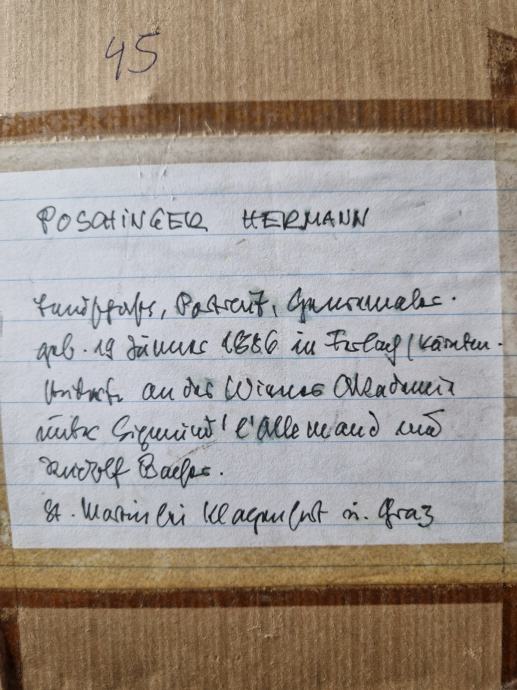 45
POSCHINGER HERMANN
Landschafts, Portrait, Genremaler.
geb. 19 Jänner 1886 in / Kärnten.
an der Wiener Akademie
unter Sigmund l'Allemand und
Rudolf Bacher.
St. Martin bei Klagenfurt u. Graz